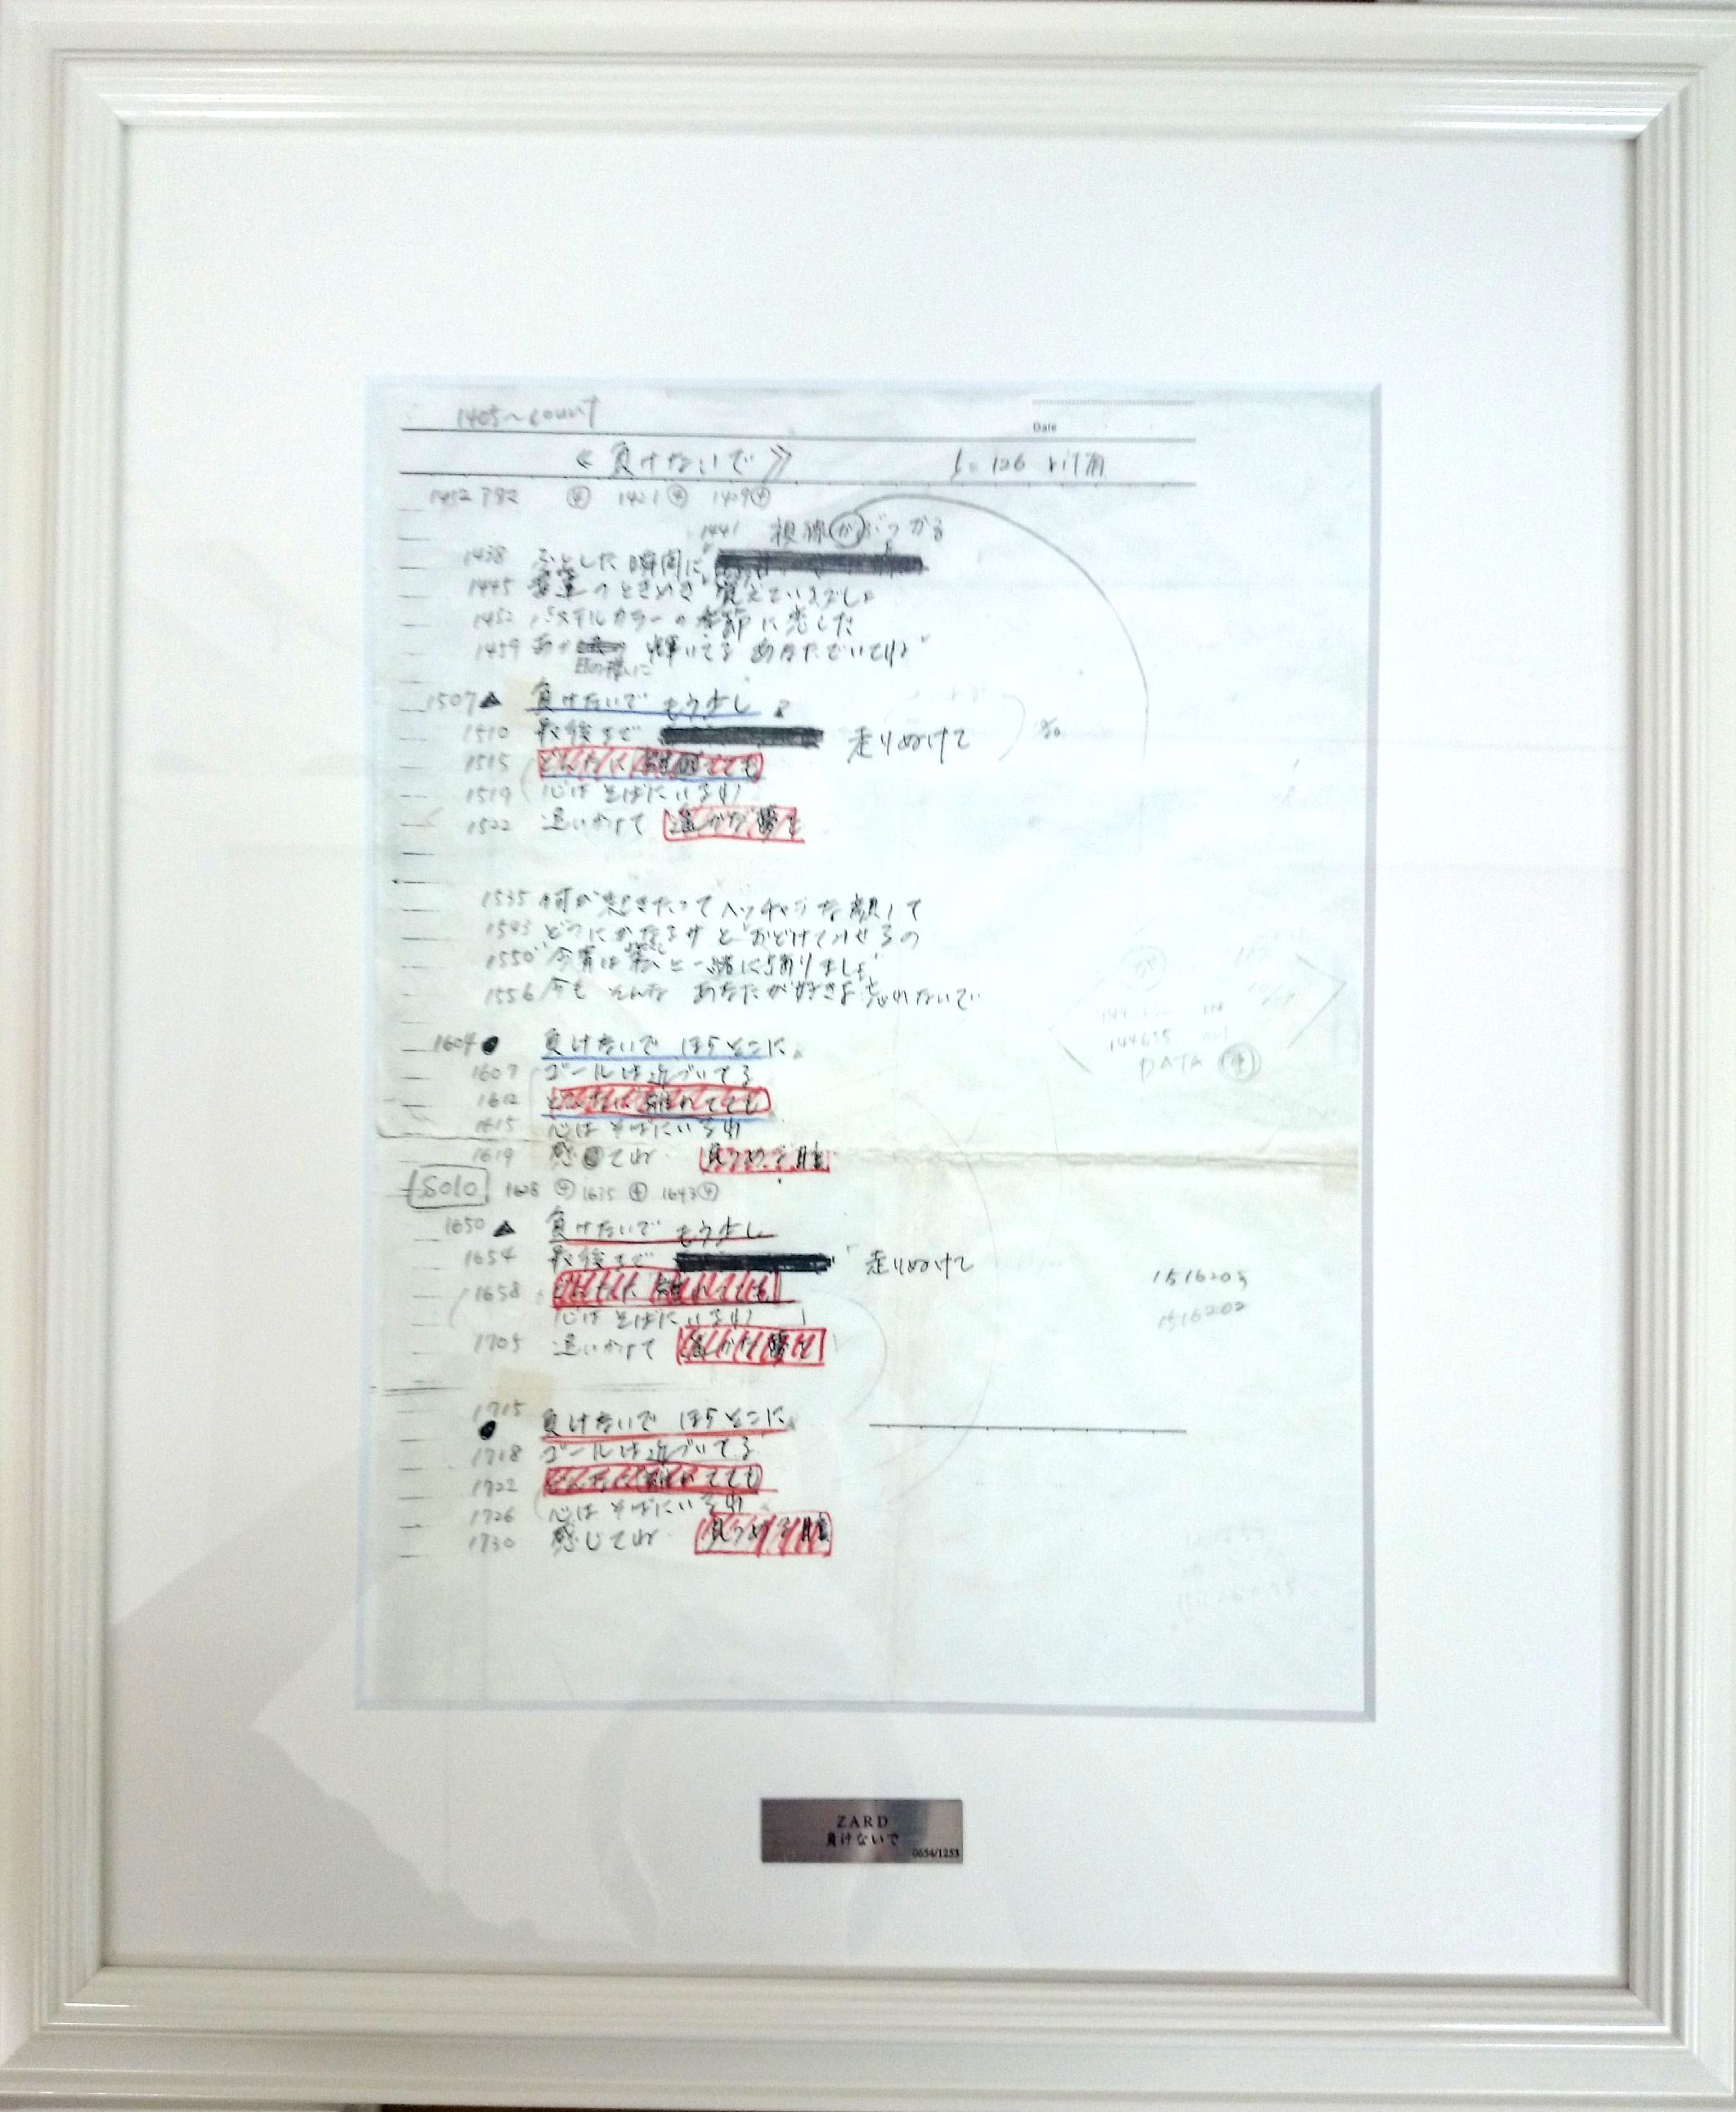 1405~count
Date
≪ 負けないで ≫ ♩= 126
1412 ④ 1421 ④ 1429 ④
1441 視線がぶつかる
1438 ふとした瞬間に
1445 のときめき 覚えているでしょ
1452 パステルカラーの季節に恋した
1459 あの 輝いてる あなたでいてね
日の様に
1507▲ 負けないで もう少し
1510 最後まで 走りぬけて
1515 どんなに 離れてても
1519 心は そばにいるわ
1522 追いかけて 遥かな 夢を
1535 何が起きたって ヘッチャラな顔して
1543 どうにかなるサと おどけてみせるの
1550 "今宵は私と一緒に踊りましょ"
1556 今も そんな あなたが好きよ 忘れないで
1604● 負けないで ほらそこに
1607 ゴールは近づいてる
1612 どんなに 離れてても
1615 心は そばにいるわ
1619 感じてね 見つめる 瞳
Solo 1628 ④ 1635 ④ 1643 ④
1650▲ 負けないで もう少し
1654 最後まで 走りぬけて
1658 どんなに 離れてても
心は そばにいるわ
1705 追いかけて 遥かな 夢を
1516203
1516202
1715● 負けないで ほらそこに
1718 ゴールは近づいてる
1722 どんなに 離れてても
1726 心は そばにいるわ
1730 感じてね 見つめる 瞳
144655 out
DATA ④
ZARD
負けないで
0654/1253